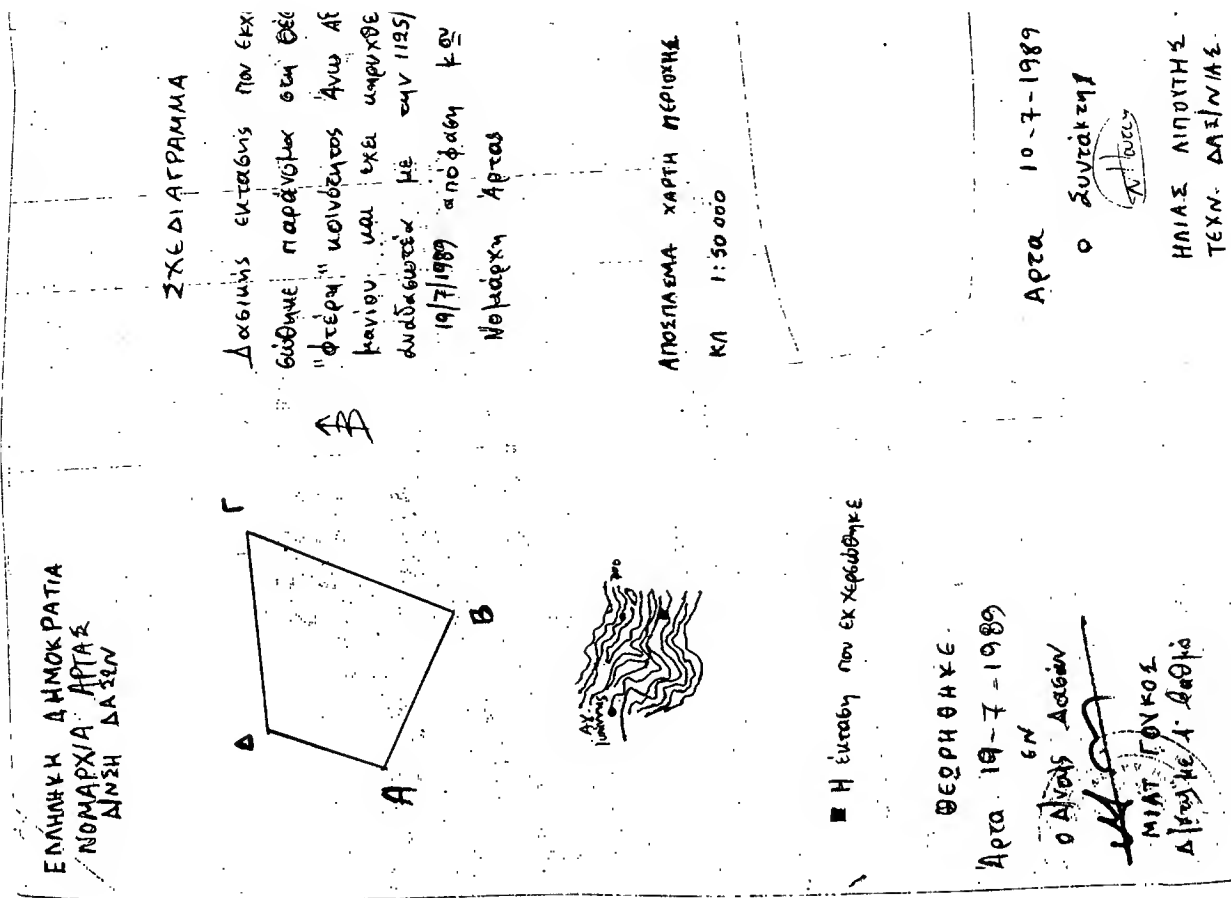 ΕΛΛΗΝΙΚΗ ΔΗΜΟΚΡΑΤΙΑ
ΝΟΜΑΡΧΙΑ ΑΡΤΑΣ
Δ/ΝΣΗ ΔΑΣΩΝ
ΣΧΕΔΙΑΓΡΑΜΜΑ
Δασικής εκτασης που εκχε
σώθηκε παράνομα στη θέσ
"φτέρη" κοινότητος Άνω
μανιου και εχει κηρυχθε
αναδασωτέα με την 1125/
19/7/1989 απόφαση κου
Νομάρχη Άρτας
Β
Δ
Γ
Α
Β
ΑΠΟΣΠΑΣΜΑ ΧΑΡΤΗ ΠΕΡΙΟΧΗΣ
ΚΛ 1:50 000
Αγ.
Ιωάννης
700
■ Η έκταση που εκχερσώθηκε
ΘΕΩΡΗΘΗΚΕ
Άρτα 19-7-1989
ο Δ/ντής Δασών
ΜΙΛΤ ΓΟΥΚΟΣ
Αρτα 10-7-1989
ο Συντάκτης
ΗΛΙΑΣ ΛΙΠΟΥΤΗΣ
ΤΕΧΝ. ΔΑΣ/ΝΙΑΣ